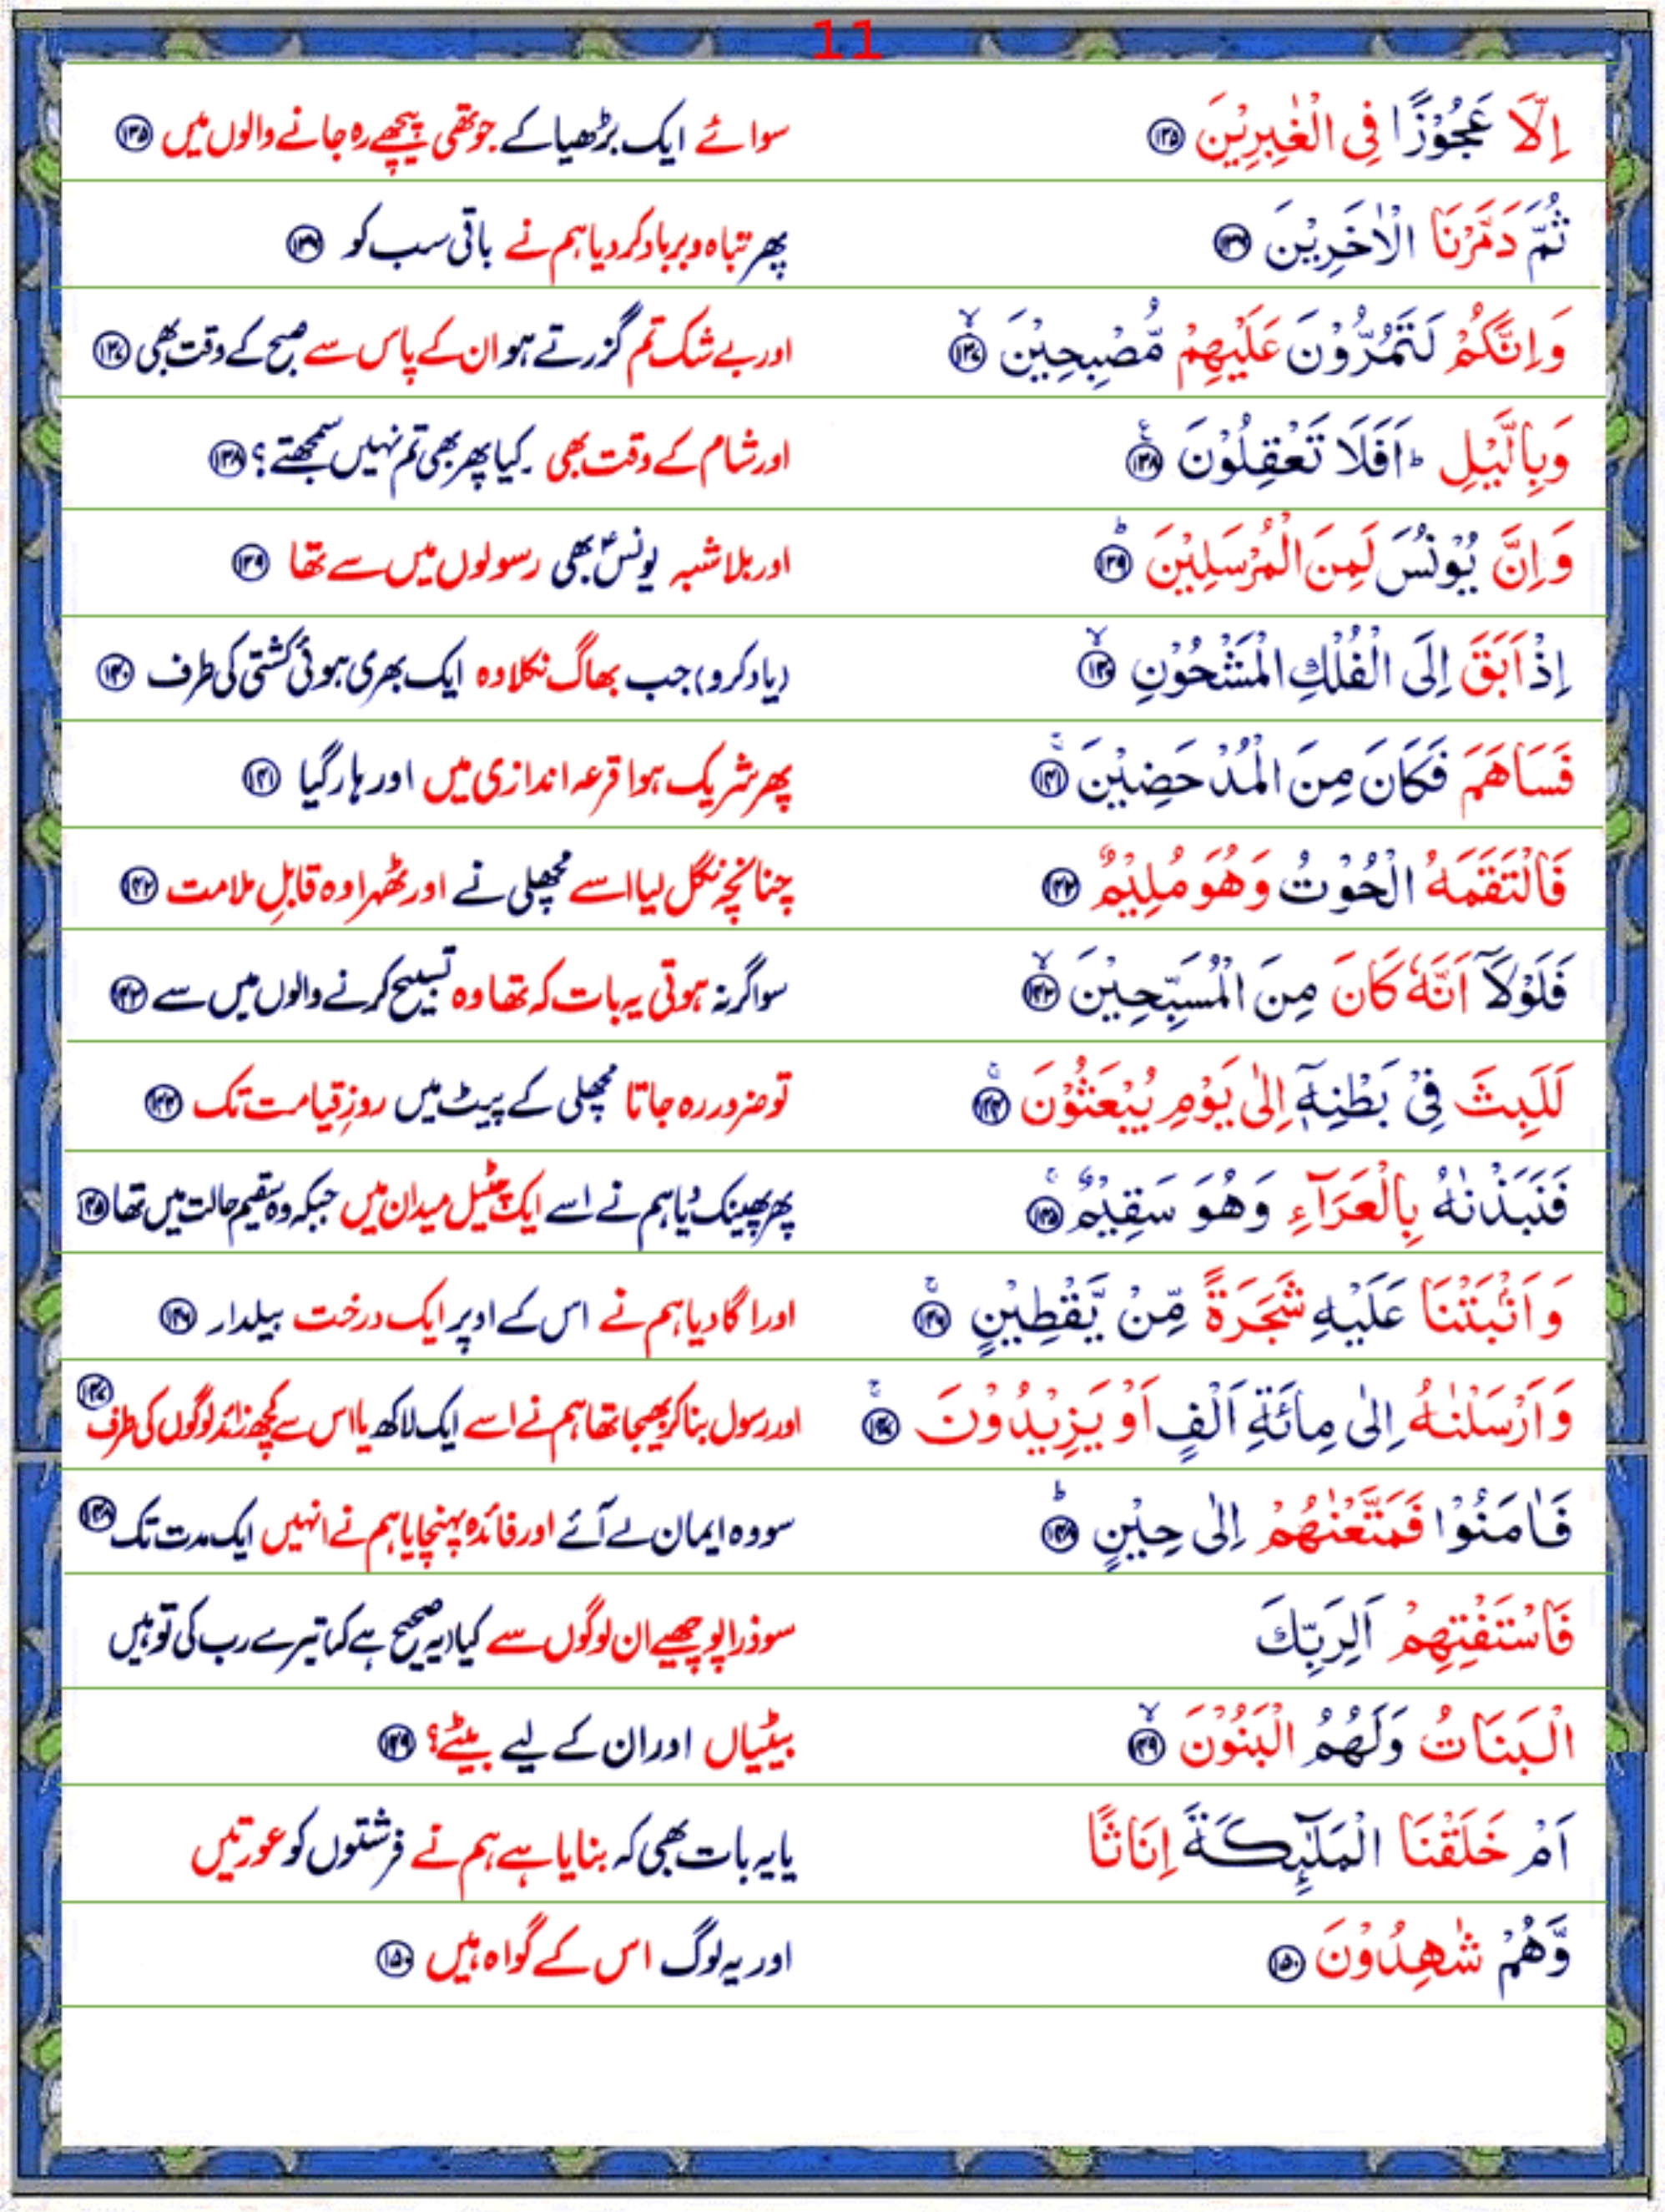 11
اِلَّا عَجُوْزًا فِى الْغٰبِرِيْنَ ۱۳۵ سوائے ایک بڑھیا کے جو تھی پیچھے رہ جانے والوں میں ۱۳۵
ثُمَّ دَمَّرْنَا الْاٰخَرِيْنَ ۱۳۶ پھر تباہ و برباد کر دیا ہم نے باقی سب کو ۱۳۶
وَاِنَّكُمْ لَتَمُرُّوْنَ عَلَيْهِمْ مُّصْبِحِيْنَ ۱۳۷ اور بے شک تم گزرتے ہو ان کے پاس سے صبح کے وقت بھی ۱۳۷
وَبِالَّيْلِ ؕ اَفَلَا تَعْقِلُوْنَ ۱۳۸ اور شام کے وقت بھی ۔ کیا پھر بھی تم نہیں سمجھتے؟ ۱۳۸
وَاِنَّ يُوْنُسَ لَمِنَ الْمُرْسَلِيْنَ ۱۳۹ اور بلاشبہ یونسؑ بھی رسولوں میں سے تھا ۱۳۹
اِذْ اَبَقَ اِلَى الْفُلْكِ الْمَشْحُوْنِ ۱۴۰ (یاد کرو) جب بھاگ نکلا وہ ایک بھری ہوئی کشتی کی طرف ۱۴۰
فَسَاهَمَ فَكَانَ مِنَ الْمُدْحَضِيْنَ ۱۴۱ پھر شریک ہوا قرعہ اندازی میں اور ہار گیا ۱۴۱
فَالْتَقَمَهُ الْحُوْتُ وَهُوَ مُلِيْمٌ ۱۴۲ چنانچہ نگل لیا اسے مچھلی نے اور ٹھہرا وہ قابلِ ملامت ۱۴۲
فَلَوْلَاۤ اَنَّهٗ كَانَ مِنَ الْمُسَبِّحِيْنَ ۱۴۳ سو اگر نہ ہوتی یہ بات کہ تھا وہ تسبیح کرنے والوں میں سے ۱۴۳
لَلَبِثَ فِىْ بَطْنِهٖۤ اِلٰى يَوْمِ يُبْعَثُوْنَ ۱۴۴ تو ضرور رہ جاتا مچھلی کے پیٹ میں روزِ قیامت تک ۱۴۴
فَنَبَذْنٰهُ بِالْعَرَآءِ وَهُوَ سَقِيْمٌ ۱۴۵ پھر پھینک دیا ہم نے اسے ایک چٹیل میدان میں جبکہ وہ سقیم حالت میں تھا ۱۴۵
وَاَنْۢبَتْنَا عَلَيْهِ شَجَرَةً مِّنْ يَّقْطِيْنٍ ۱۴۶ اور اگا دیا ہم نے اس کے اوپر ایک درخت بیلدار ۱۴۶
وَاَرْسَلْنٰهُ اِلٰى مِائَةِ اَلْفٍ اَوْ يَزِيْدُوْنَ ۱۴۷ اور رسول بنا کر بھیجا تھا ہم نے اسے ایک لاکھ یا اس سے کچھ زائد لوگوں کی طرف ۱۴۷
فَاٰمَنُوْا فَمَتَّعْنٰهُمْ اِلٰى حِيْنٍ ۱۴۸ سو وہ ایمان لے آئے اور فائدہ پہنچایا ہم نے انہیں ایک مدت تک ۱۴۸
فَاسْتَفْتِهِمْ اَلِرَبِّكَ سو ذرا پوچھیے ان لوگوں سے کیا (یہ صحیح ہے کہ) تیرے رب کی تو ہیں
الْبَنَاتُ وَلَهُمُ الْبَنُوْنَ ۱۴۹ بیٹیاں اور ان کے لیے بیٹے؟ ۱۴۹
اَمْ خَلَقْنَا الْمَلٰٓئِكَةَ اِنَاثًا یا یہ بات بھی کہ بنایا ہے ہم نے فرشتوں کو عورتیں
وَّهُمْ شٰهِدُوْنَ ۱۵۰ اور یہ لوگ اس کے گواہ ہیں ۱۵۰